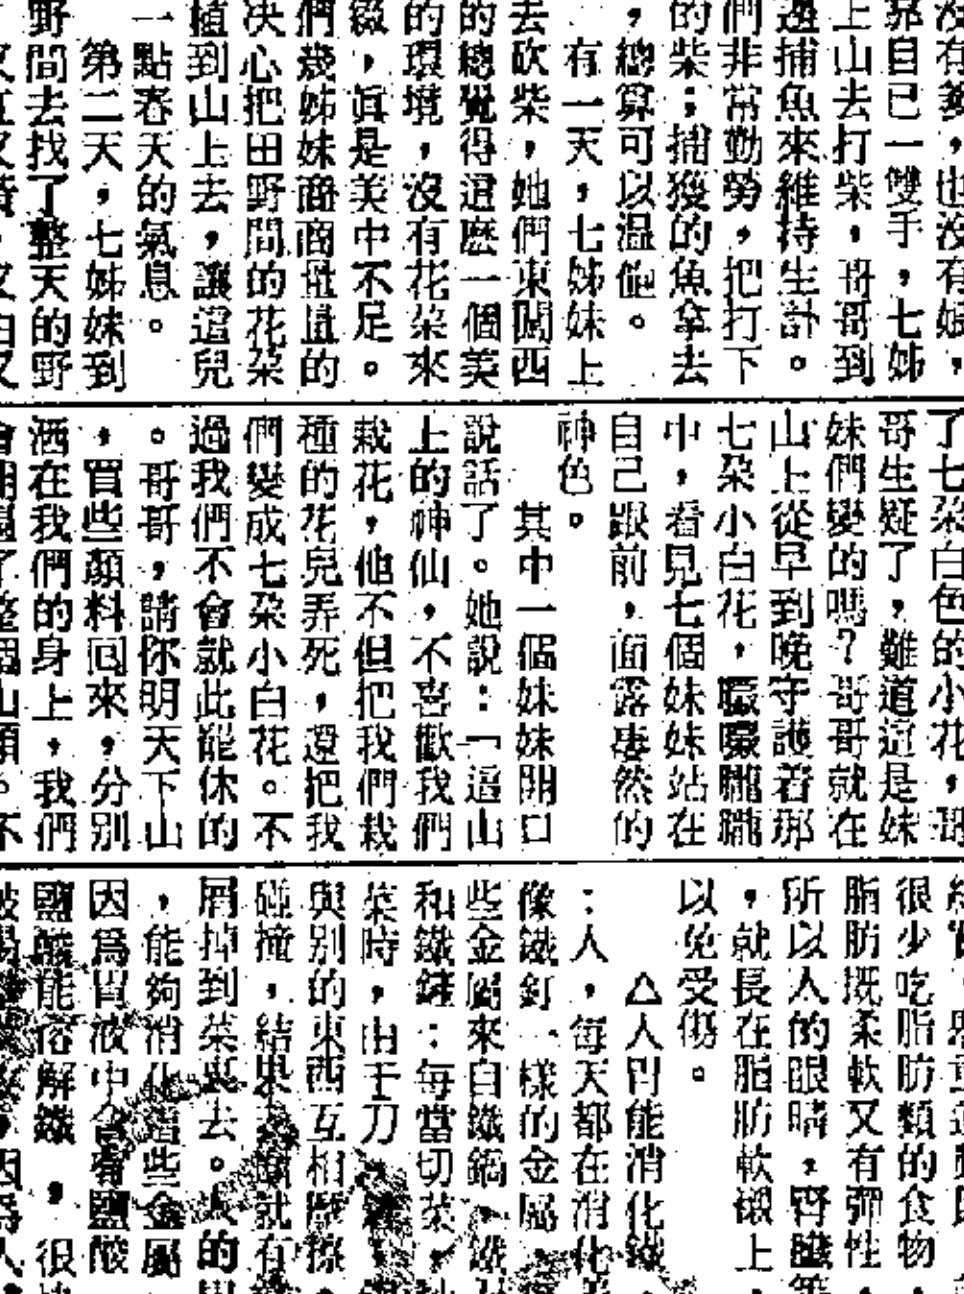 沒有爹，也沒有娘，
靠自己一雙手，七姊
上山去打柴，哥哥到
邊捕魚來維持生計。
們非常勤勞，把打下
的柴；捕獲的魚拿去
，總算可以温飽。
有一天，七姊妹上
去砍柴，她們東闖西
的總覺得這麽一個美
的環境，沒有花朶來
綴，眞是美中不足。
們幾姊妹商商量量的
决心把田野間的花朶
植到山上去，讓這兒
一點春天的氣息。
第二天，七姊妹到
野間去找了整天的野
了七朶白色的小花，哥
哥生疑了，難道這是妹
妹們變的嗎？哥哥就在
山上從早到晚守護着那
七朶小白花，朦朦朧朧
中，看見七個妹妹站在
自己跟前，面露凄然的
神色。
其中一個妹妹開口
說話了。她說：「這山
上的神仙，不喜歡我們
栽花，他不但把我們栽
種的花兒弄死，還把我
們變成七朶小白花。不
過我們不會就此罷休的
。哥哥，請你明天下山
，買些顏料回來，分別
洒在我們的身上，我們
很少吃脂肪類的食物
脂肪既柔軟又有彈性，
所以人的眼睛，腎臟等
，就長在脂肪軟櫬上，
以免受傷。
△人胃能消化鐵
：人，每天都在消化
像鐵釘一樣的金屬，
些金屬來自鐵鍋，鐵
和鐵鏟：每當切菜，
菜時，由于刀，鏟，
與别的東西互相摩擦
碰撞，結果就有
屑掉到菜裏去。人的
，能夠消化這些金屬
因爲胃液中含有鹽酸
鹽酸能溶解鐵，很